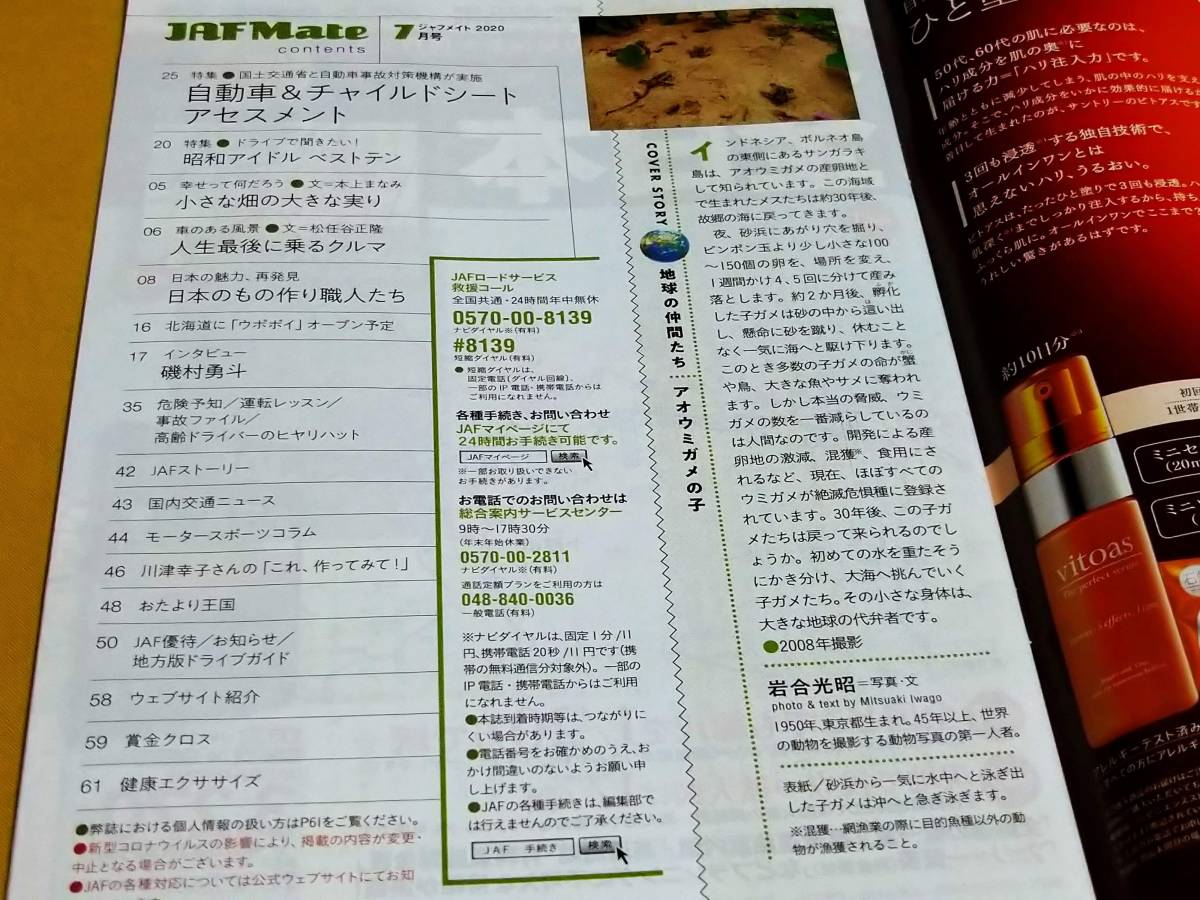 JAF Mate
contents
7
月号
ジャフメイト 2020
25 特集 ● 国土交通省と自動車事故対策機構が実施
自動車＆チャイルドシート
アセスメント
20 特集 ● ドライブで聞きたい！
昭和アイドル ベストテン
05 幸せって何だろう ● 文＝本上まなみ
小さな畑の大きな実り
06 車のある風景 ● 文＝松任谷正隆
人生最後に乗るクルマ
08 日本の魅力、再発見
日本のもの作り職人たち
16 北海道に「ウポポイ」オープン予定
17 インタビュー
磯村勇斗
35 危険予知／運転レッスン／
事故ファイル／
高齢ドライバーのヒヤリハット
42 JAFストーリー
43 国内交通ニュース
44 モータースポーツコラム
46 川津幸子さんの「これ、作ってみて！」
48 おたより王国
50 JAF優待／お知らせ／
地方版ドライブガイド
58 ウェブサイト紹介
59 賞金クロス
61 健康エクササイズ
●弊誌における個人情報の扱い方はP61をご覧ください。
●新型コロナウイルスの影響により、掲載の内容が変更・
中止となる場合がございます。
●JAFの各種対応については公式ウェブサイトにてお知
JAFロードサービス
救援コール
全国共通・24時間年中無休
0570-00-8139
ナビダイヤル※（有料）
#8139
短縮ダイヤル（有料）
● 短縮ダイヤルは、
固定電話（ダイヤル回線）、
一部の IP 電話・携帯電話からは
ご利用になれません。
各種手続き、お問い合わせ
JAFマイページにて
24時間お手続き可能です。
JAFマイページ 検索
※一部お取り扱いできない
お手続きがあります。
お電話でのお問い合わせは
総合案内サービスセンター
9時〜17時30分
（年末年始休業）
0570-00-2811
ナビダイヤル※（有料）
通話定額プランをご利用の方は
048-840-0036
一般電話（有料）
※ナビダイヤルは、固定 1 分 /11
円、携帯電話 20秒 /11 円です（携
帯の無料通信分対象外）。一部の
IP 電話・携帯電話からはご利用
になれません。
●本誌到着時期等は、つながりに
くい場合があります。
●電話番号をお確かめのうえ、お
かけ間違いのないようお願い申
し上げます。
●JAFの各種手続きは、編集部で
は行えませんのでご了承ください。
JAF 手続き 検索
COVER STORY
地球の仲間たち
アオウミガメの子
インドネシア、ボルネオ島
の東側にあるサンガラキ
島は、アオウミガメの産卵地と
して知られています。この海域
で生まれたメスたちは約30年後、
故郷の海に戻ってきます。
夜、砂浜にあがり穴を掘り、
ピンポン玉より少し小さな100
〜150個の卵を、場所を変え、
1週間かけ4、5回に分けて産み
落とします。約2か月後、孵化
した子ガメは砂の中から這い出
し、懸命に砂を蹴り、休むこと
なく一気に海へと駆け下ります。
このとき多数の子ガメの命が蟹
や鳥、大きな魚やサメに奪われ
ます。しかし本当の脅威、ウミ
ガメの数を一番減らしているの
は人間なのです。開発による産
卵地の激減、混獲※、食用にさ
れるなど、現在、ほぼすべての
ウミガメが絶滅危惧種に登録さ
れています。30年後、この子ガ
メたちは戻って来られるのでし
ょうか。初めての水を重たそう
にかき分け、大海へ挑んでいく
子ガメたち。その小さな身体は、
大きな地球の代弁者です。
●2008年撮影
岩合光昭＝写真・文
photo & text by Mitsuaki Iwago
1950年、東京都生まれ。45年以上、世界
の動物を撮影する動物写真の第一人者。
表紙／砂浜から一気に水中へと泳ぎ出
した子ガメは沖へと急ぎ泳ぎます。
※混獲…網漁業の際に目的魚種以外の動
物が漁獲されること。
50代、60代の肌に必要なのは、
ハリ成分を肌の奥に
届ける力＝「ハリ注入力」です。
3回も浸透する独自技術で、
オールインワンとは
思えないハリ、うるおい。
約10日分
初回
1世帯
ミニセ
(20m
ミニ
vitoas
The perfect serum